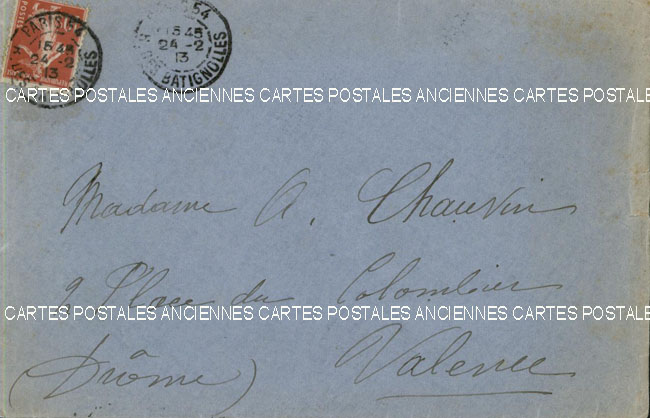 PARIS 54
15 45
24 -2
13
R. DES BATIGNOLLES
POSTES
54
15 45
24 -2
13
R. DES BATIGNOLLES
CARTES POSTALES ANCIENNES CARTES POSTALES ANCIENNES CARTES POSTALES
Madame A. Chauvin
2 Place du Colombier
CARTES POSTALES ANCIENNES CARTES POSTALES ANCIENNES CARTES POSTALES
Valence
(Drôme)